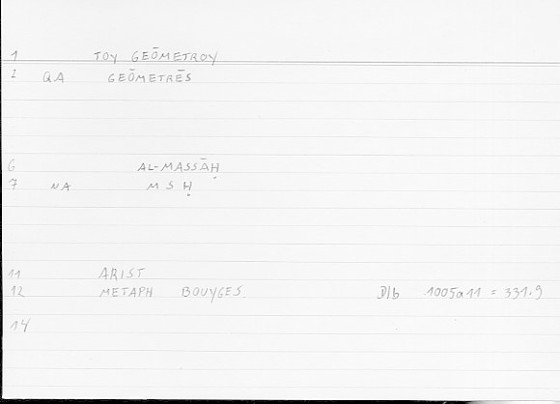 1 TOY GEŌMETROY
2 QA GEŌMETRĒS
6 AL-MASSĀḤ
7 NA M S Ḥ
11 ARIST
12 METAPH BOUYGES 1005a11 = 331.9
14